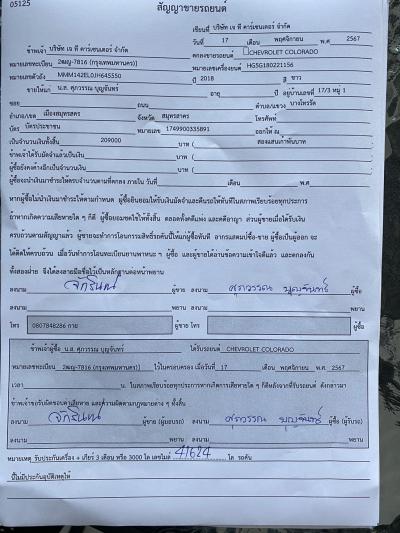 05125
สัญญาขายรถยนต์
เขียนที่ บริษัท เจ พี คาร์เซนเตอร์ จำกัด
วันที่ 17 เดือน พฤศจิกายน พ.ศ. 2567
ข้าพเจ้า บริษัท เจ พี คาร์เซนเตอร์ จำกัด ตกลงขายรถยนต์ CHEVROLET COLORADO
หมายเลขทะเบียน 2ฒญ-7816 (กรุงเทพมหานคร)) หมายเลขเครื่องยนต์ HG5G180221156
หมายเลขตัวถัง MMM142EL0JH645550 ปี 2018 สี ขาว
ขายให้แก่ น.ส. ศุภวรรณ บุญจันทร์ อายุ ปี อยู่บ้านเลขที่ 17/3 หมู่ 1
ซอย ถนน ตำบล/แขวง บางโทรัด
อำเภอ/เขต เมืองสมุทรสาคร จังหวัด สมุทรสาคร โทรศัพท์
บัตร บัตรประชาชน หมายเลข 1749900335891 ออกให้ ณ
เป็นจำนวนเงินทั้งสิ้น 209000 บาท ( สองแสนเก้าพันบาท
ข้าพเจ้าได้รับมัดจำแล้วเป็นเงิน บาท (
ผู้ซื้อยังคงค้างอีกเป็นจำนวนเงิน บาท (
ผู้ซื้อจะนำเงินมาชำระให้ครบถ้วนตามที่ตกลง ภายใน วันที่ เดือน พ.ศ.
หากผู้ซื้อไม่นำเงินมาชำระให้ตามกำหนด ผู้ซื้อยินยอมให้ริบเงินมัดจำและคืนรถให้ทันทีในสภาพเรียบร้อยทุกประการ
ถ้าหากเกิดความเสียหายใด ๆ ก็ดี ผู้ซื้อยอมชดใช้ให้ทั้งสิ้น ตลอดทั้งคดีแพ่ง และคดีอาญา ส่วนผู้ขายเมื่อได้รับเงิน
ครบถ้วนตามสัญญาแล้ว ผู้ขายจะทำการโอนกรรมสิทธิ์รถคันนี้ให้แก่ผู้ซื้อทันที อากรแสตมป์ซื้อ-ขาย ผู้ซื้อเป็นผู้ออก จะ
ได้คิดให้ครบถ้วน เมื่อวันทำการโอนทะเบียนยานพาหนะ ฯ ผู้ซื้อ และผู้ขายได้อ่านข้อความเข้าใจดีแล้ว และตกลงกัน
ทั้งสองฝ่าย จึงได้ลงลายมือชื่อไว้เป็นหลักฐานต่อหน้าพยาน
ลงนาม จักรินทร์ ผู้ขาย ลงนาม ศุภวรรณ บุญจันทร์ ผู้ซื้อ
ลงนาม พยาน ลงนาม พยาน
โทร 0807848286 กาย ผู้ขาย โทร ผู้ซื้อ
ข้าพเจ้าผู้ซื้อ น.ส. ศุภวรรณ บุญจันทร์ ได้รับรถยนต์ CHEVROLET COLORADO
หมายเลขทะเบียน 2ฒญ-7816 (กรุงเทพมหานคร)) ไว้ในครอบครอง เมื่อวันที่ 17 เดือน พฤศจิกายน พ.ศ. 2567
เวลา น. ในสภาพเรียบร้อยทุกประการหากเกิดการเสียหายใด ๆ ก็ดีหลังจากที่รับรถยนต์ ดังกล่าวมา
ข้าพเจ้าขอรับผิดชอบค่าเสียหาย และความผิดตามกฎหมายต่าง ๆ ทั้งสิ้น
ลงนาม จักรินทร์ ผู้ขาย (ผู้มอบรถ) ลงนาม ศุภวรรณ บุญจันทร์ ผู้ซื้อ (ผู้รับรถ)
ลงนาม พยาน ลงนาม พยาน
หมายเหตุ รับประกันเครื่อง + เกียร์ 3 เดือน หรือ 3000 โล เลขไมล์ 41624 โล รถคัน
นี้ไม่มีประกันอุบัติเหตุให้